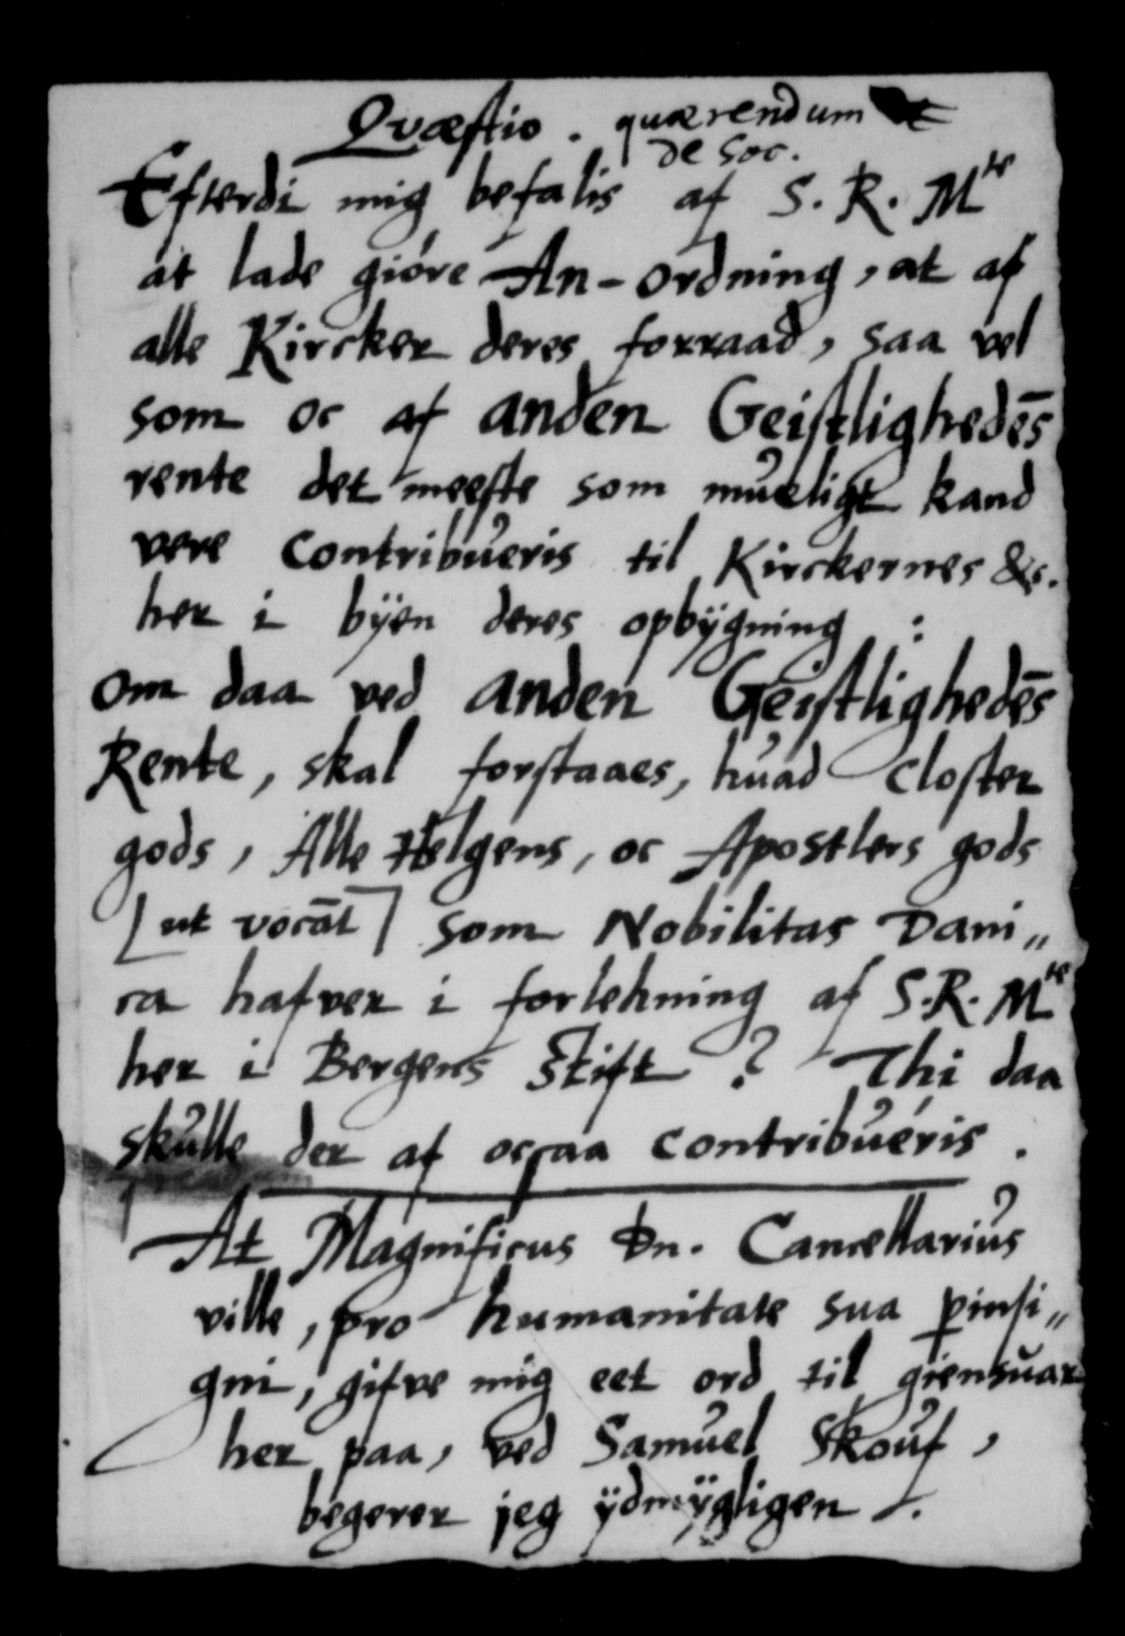 Qvæstio. quærendum
de soc.
Efterdi mig befalis af S. R. Mte
at lade giöre An-ordning, at af
alle Kircker deres forraad, saa vel
som oc af anden Geistlighedēs
rente det meeste som mueligt kand
vere contribueris til Kirckernes &c.
her i bÿen deres opbÿgning :
om daa ved anden Geistlighedēs
Rente, skal forstaaes, huad closter
gods, Alle Helgens, oc Apostlers gods
[ut vocāt] som Nobilitas Dani„
ca hafver i forlehning af S.R. Mte
her i Bergens Stift ? Thi daa
skulle der af ocsaa contribuéris .
At Magnificus Dn. Cancellarius
ville, pro humanitate sua pinsi„
gni, gifve mig eet ord til giensuar
her paa, ved Samuel Skouf,
begerer jeg ÿdmÿgligen .